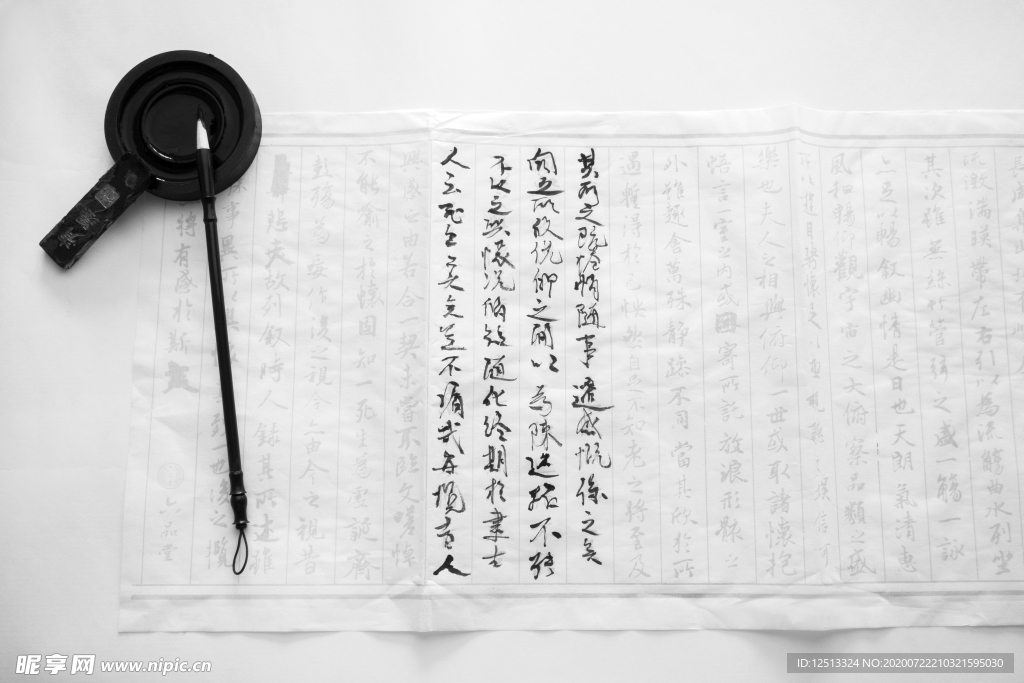 流激湍暎帶左右引以為流觴曲水列坐
其次雖無絲竹管弦之盛一觴一詠
亦足以暢敘幽情是日也天朗氣清惠
風和暢仰觀宇宙之大俯察品類之盛
所以遊目騁懷足以極視聽之娛信可
樂也夫人之相與俯仰一世或取諸懷抱
悟言一室之內或因寄所託放浪形骸之
外雖趣舍萬殊靜躁不同當其欣於所
遇暫得於己快然自足不知老之將至及
其所之既惓情隨事遷感慨係之矣
向之所欣俛仰之閒以為陳迹猶不能
不以之興懷況脩短隨化終期於盡古
人云死生亦大矣豈不痛哉每攬昔人
興感之由若合一契未嘗不臨文嗟悼
不能喻之於懷固知一死生為虛誕齊
彭殤為妄作後之視今亦由今之視昔
悲夫故列敘時人錄其所述雖
殊事異所以興懷其致一也後之攬
將有感於斯文
一品堂
昵享网 www.nipic.cn
ID:12513324 NO:20200722210321595030